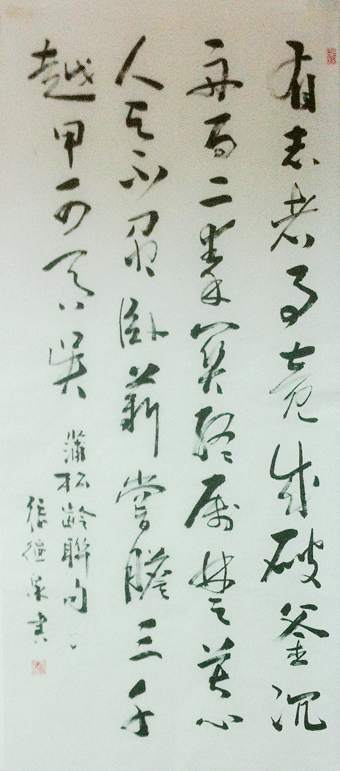 有志者事竟成破釜沉
舟百二秦关终属楚苦心
人天不负卧薪嘗膽三千
越甲可吞吴 蒲松龄联句
張德泉書